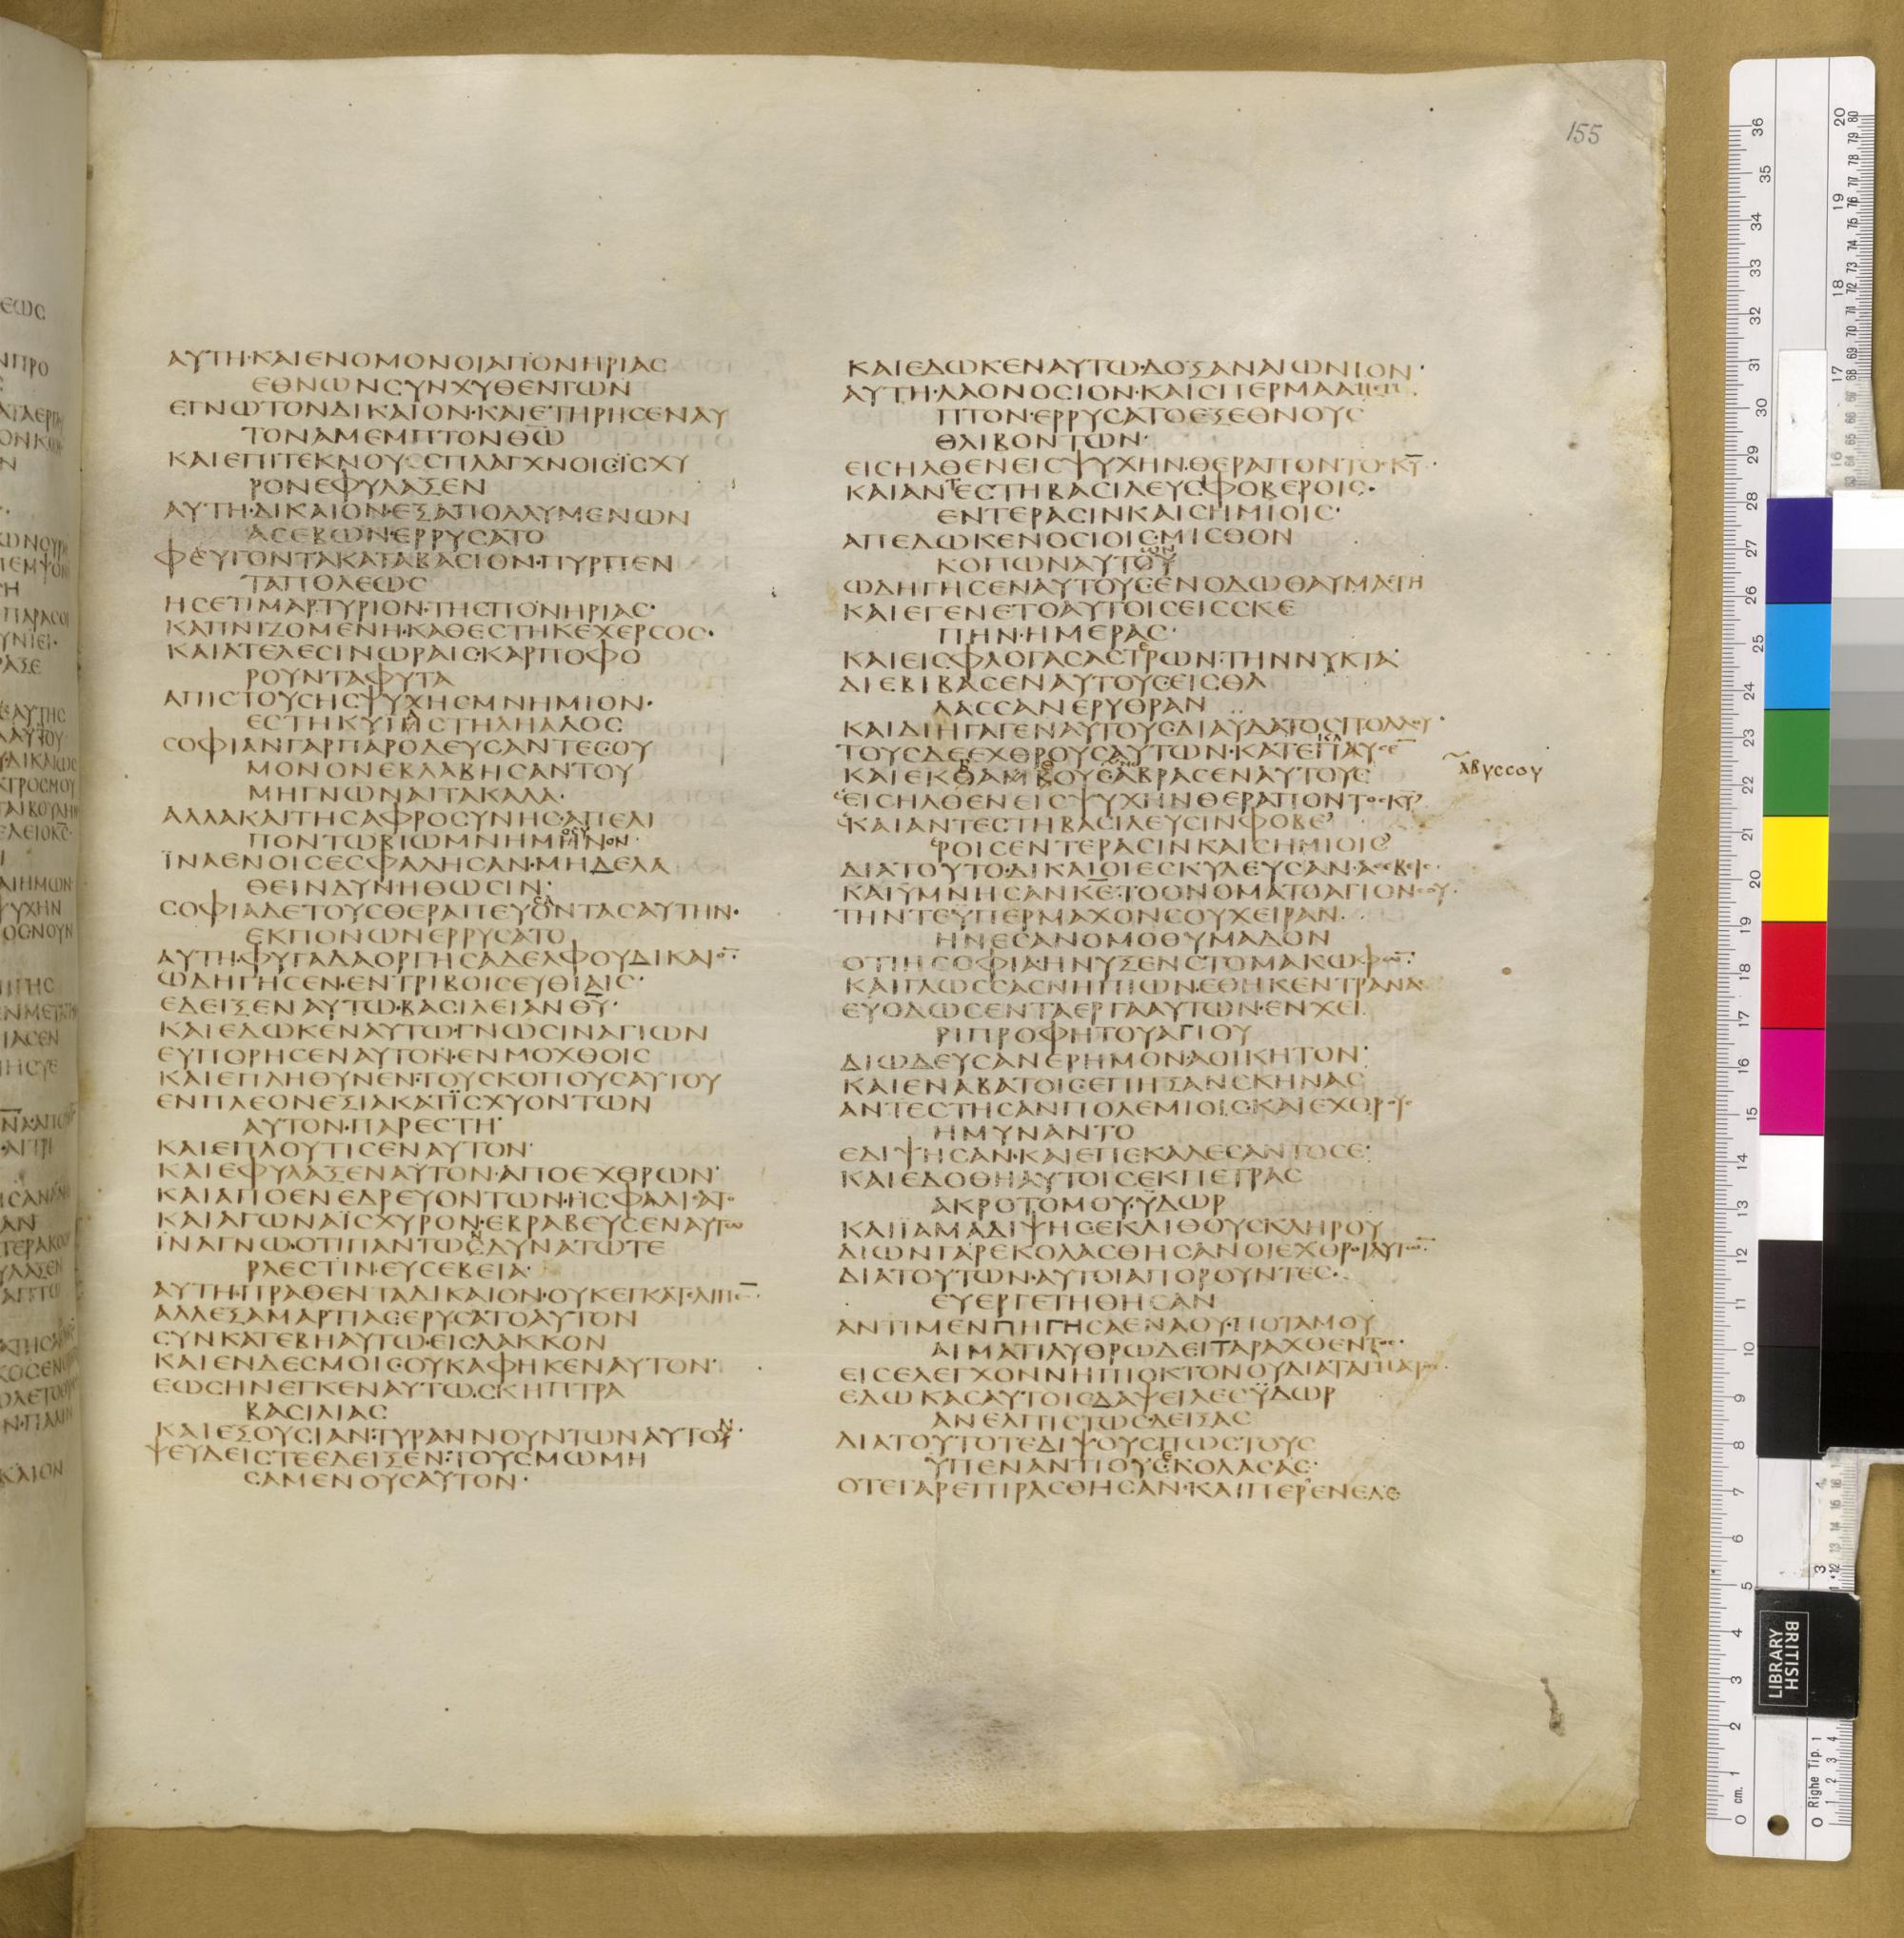 155
ΑΥΤΗ·ΚΑΙΕΝΟΜΟΝΟΙΑΠΟΝΗΡΙΑϹ
ΕΘΝΩΝϹΥΝΧΥΘΕΝΤΩΝ
ΕΓΝΩΤΟΝΔΙΚΑΙΟΝ·ΚΑΙΕΤΗΡΗϹΕΝΑΥ
ΤΟΝΑΜΕΜΠΤΟΝΘΩ̅
ΚΑΙΕΠΙΤΕΚΝΟΥϹΠΛΑΓΧΝΟΙϹΪϹΧΥ
ΡΟΝΕΦΥΛΑΞΕΝ
ΑΥΤΗ·ΔΙΚΑΙΟΝ·ΕΞΑΠΟΛΛΥΜΕΝΩΝ
ΑϹΕΒΩΝ·ΕΡΡΥϹΑΤΟ
ΦΕΥΓΟΝΤΑΚΑΤΑΒΑϹΙΟΝ·ΠΥΡΠΕΝ
ΤΑΠΟΛΕΩϹ
ΗϹΕΤΙΜΑΡΤΥΡΙΟΝ·ΤΗϹΠΟΝΗΡΙΑϹ·
ΚΑΠΝΙΖΟΜΕΝΗ·ΚΑΘΕϹΤΗΚΕΧΕΡϹΟϹ·
ΚΑΙΑΤΕΛΕϹΙΝΩΡΑΙϹ·ΚΑΡΠΟΦΟ
ΡΟΥΝΤΑΦΥΤΑ
ΑΠΙϹΤΟΥϹΗϹΨΥΧΗϹΜΝΗΜΙΟΝ·
ΕϹΤΗΚΥΙΑϹΤΗΛΗΑΛΟϹ
ϹΟΦΙΑΝΓΑΡΠΑΡΟΔΕΥϹΑΝΤΕϹΟΥ
ΜΟΝΟΝΕΒΛΑΒΗϹΑΝΤΟΥ
ΜΗΓΝΩΝΑΙΤΑΚΑΛΑ·
ΑΛΛΑΚΑΙΤΗϹΑΦΡΟϹΥΝΗϹ·ΑΠΕΛΙ
ΠΟΝΤΩΒΙΩΜΝΗΜΗΝΟΝ·
ΪΝΑΕΝΟΙϹΕϹΦΑΛΗϹΑΝ·ΜΗΔΕΛΑ
ΘΕΙΝΔΥΝΗΘΩϹΙΝ·
ϹΟΦΙΑΔΕΤΟΥϹΘΕΡΑΠΕΥΟΝΤΑϹΑΥΤΗΝ·
ΕΚΠΟΝΩΝΕΡΡΥϹΑΤΟ
ΑΥΤΗ·ΦΥΓΑΔΑΟΡΓΗϹΑΔΕΛΦΟΥΔΙΚΑΙΟ̅·
ΩΔΗΓΗϹΕΝ·ΕΝΤΡΙΒΟΙϹΕΥΘΙΑΙϹ·
ΕΔΕΙΞΕΝΑΥΤΩ·ΒΑϹΙΛΕΙΑΝΘΥ̅·
ΚΑΙΕΔΩΚΕΝΑΥΤΩ·ΓΝΩϹΙΝΑΓΙΩΝ
ΕΥΠΟΡΗϹΕΝΑΥΤΟΝ·ΕΝΜΟΧΘΟΙϹ
ΚΑΙΕΠΛΗΘΥΝΕΝ·ΤΟΥϹΚΟΠΟΥϹΑΥΤΟΥ
ΕΝΠΛΕΟΝΕΞΙΑΚΑΤΪϹΧΥΟΝΤΩΝ
ΑΥΤΟΝ·ΠΑΡΕϹΤΗ·
ΚΑΙΕΠΛΟΥΤΙϹΕΝΑΥΤΟΝ·
ΚΑΙΕΦΥΛΑΞΕΝΑΥΤΟΝ·ΑΠΟΕΧΘΡΩΝ·
ΚΑΙΑΠΟΕΝΕΔΡΕΥΟΝΤΩΝ·ΗϹΦΑΛΙϹΑΤΟ
ΚΑΙΑΓΩΝΑΪϹΧΥΡΟΝ·ΕΒΡΑΒΕΥϹΕΝΑΥΤΩ
ΙΝΑΓΝΩ·ΟΤΙΠΑΝΤΩϹΔΥΝΑΤΩΤΕ
ΡΑΕϹΤΙΝ·ΕΥϹΕΒΕΙΑ·
ΑΥΤΗ·ΠΡΑΘΕΝΤΑΔΙΚΑΙΟΝ·ΟΥΚΕΓΚΑΤΑΛΙΠΕ̅·
ΑΛΛΕΞΑΜΑΡΤΙΑϹΕΡΥϹΑΤΟΑΥΤΟΝ
ϹΥΝΚΑΤΕΒΗΑΥΤΩ·ΕΙϹΛΑΚΚΟΝ
ΚΑΙΕΝΔΕϹΜΟΙϹΟΥΚΑΦΗΚΕΝΑΥΤΟΝ·
ΕΩϹΗΝΕΓΚΕΝΑΥΤΩ·ϹΚΗΠΤΡΑ
ΒΑϹΙΛΙΑϹ
ΚΑΙΕΞΟΥϹΙΑΝ·ΤΥΡΑΝΝΟΥΝΤΩΝΑΥΤΟΥ·
ΨΕΥΔΕΙϹΤΕΕΔΕΙΞΕΝ·ΤΟΥϹΜΩΜΗ
ϹΑΜΕΝΟΥϹΑΥΤΟΝ·
ΚΑΙΕΔΩΚΕΝΑΥΤΩ·ΔΟΞΑΝΑΙΩΝΙΟΝ·
ΑΥΤΗ·ΛΑΟΝΟϹΙΟΝ·ΚΑΙϹΠΕΡΜΑΑΜΕΜ
ΠΤΟΝ·ΕΡΡΥϹΑΤΟΕΞΕΘΝΟΥϹ
ΘΛΙΒΟΝΤΩΝ·
ΕΙϹΗΛΘΕΝΕΙϹΨΥΧΗΝ·ΘΕΡΑΠΟΝΤΟϹΚΥ̅·
ΚΑΙΑΝΤΕϹΤΗΒΑϹΙΛΕΥϹΦΟΒΕΡΟΙϹ·
ΕΝΤΕΡΑϹΙΝΚΑΙϹΗΜΙΟΙϹ·
ΑΠΕΔΩΚΕΝΟϹΙΟΙϹ·ΜΙϹΘΟΝ
ΚΟΠΩΝΑΥΤΟΥ
ΩΔΗΓΗϹΕΝΑΥΤΟΥϹ·ΕΝΟΔΩΘΑΥΜΑϹΤΗ
ΚΑΙΕΓΕΝΕΤΟΑΥΤΟΙϹΕΙϹϹΚΕ
ΠΗΝ·ΗΜΕΡΑϹ·
ΚΑΙΕΙϹΦΛΟΓΑϹΑϹΤΡΩΝ·ΤΗΝΝΥΚΤΑ·
ΔΙΕΒΙΒΑϹΕΝΑΥΤΟΥϹ·ΕΙϹΘΑ
ΛΑϹϹΑΝΕΡΥΘΡΑΝ
ΚΑΙΔΙΗΓΑΓΕΝΑΥΤΟΥϹ·ΔΙΑΥΔΑΤΟϹΠΟΛΛΟΥ·
ΤΟΥϹΔΕΕΧΘΡΟΥϹΑΥΤΩΝ·ΚΑΤΕΠΑΥϹΕ̅
ΚΑΙΕΚΘΑΜΒΟΥϹΑΒΡΑϹΕΝΑΥΤΟΥϹ
αβυϲϲου
ΕΙϹΗΛΘΕΝΕΙϹΨΥΧΗΝΘΕΡΑΠΟΝΤΟϹΚΥ̅
ΚΑΙΑΝΤΕϹΤΗΒΑϹΙΛΕΥϹΙΝΦΟΒΕ
ΡΟΙϹΕΝΤΕΡΑϹΙΝΚΑΙϹΗΜΙΟΙϹ
ΔΙΑΤΟΥΤΟ·ΔΙΚΑΙΟΙΕϹΚΥΛΕΥϹΑΝ·ΑϹΕΒΙϹ·
ΚΑΙΫΜΝΗϹΑΝΚΕ̅·ΤΟΟΝΟΜΑΤΟΑΓΙΟΝϹΟΥ·
ΤΗΝΤΕΫΠΕΡΜΑΧΟΝϹΟΥΧΕΙΡΑΝ·
ΗΝΕϹΑΝΟΜΟΘΥΜΑΔΟΝ
ΟΤΙΗϹΟΦΙΑ·ΗΝΥΞΕΝϹΤΟΜΑΚΩΦΩ̅·
ΚΑΙΓΛΩϹϹΑϹΝΗΠΙΩΝ·ΕΘΗΚΕΝΤΡΑΝΑϹ
ΕΥΟΔΩϹΕΝΤΑΕΡΓΑΑΥΤΩΝ·ΕΝΧΕΙ
ΡΙΠΡΟΦΗΤΟΥΑΓΙΟΥ
ΔΙΩΔΕΥϹΑΝΕΡΗΜΟΝ·ΑΟΙΚΗΤΟΝ·
ΚΑΙΕΝΑΒΑΤΟΙϹ·ΕΠΗΞΑΝϹΚΗΝΑϹ
ΑΝΤΕϹΤΗϹΑΝΠΟΛΕΜΙΟΙϹ·ΚΑΙΕΧΘΡΟΥϹ
ΗΜΥΝΑΝΤΟ
ΕΔΙΨΗϹΑΝ·ΚΑΙΕΠΕΚΑΛΕϹΑΝΤΟϹΕ·
ΚΑΙΕΔΟΘΗΑΥΤΟΙϹΕΚΠΕΤΡΑϹ
ΑΚΡΟΤΟΜΟΥ·ΫΔΩΡ
ΚΑΙΪΑΜΑΔΙΨΗϹ·ΕΚΛΙΘΟΥϹΚΛΗΡΟΥ
ΔΙΩΝΓΑΡΕΚΟΛΑϹΘΗϹΑΝΟΙΕΧΘΡΟΙΑΥΤΩ̅·
ΔΙΑΤΟΥΤΩΝ·ΑΥΤΟΙΑΠΟΡΟΥΝΤΕϹ·
ΕΥΕΡΓΕΤΗΘΗϹΑΝ
ΑΝΤΙΜΕΝΠΗΓΗϹΑΕΝΑΟΥ·ΠΟΤΑΜΟΥ
ΑΙΜΑΤΙΛΥΘΡΩΔΕΙΤΑΡΑΧΘΕΝΤΟϹ·
ΕΙϹΕΛΕΓΧΟΝΝΗΠΙΟΚΤΟΝΟΥΔΙΑΤΑΓΜΑΤΟϹ·
ΕΔΩΚΑϹΑΥΤΟΙϹΔΑΨΕΙΛΕϹΫΔΩΡ
ΑΝΕΛΠΙϹΤΩϹ·ΔΕΙΞΑϹ
ΔΙΑΤΟΥΤΟΤΕΔΙΨΟΥϹΠΩϹΤΟΥϹ
ΥΠΕΝΑΝΤΙΟΥϹΕΚΟΛΑϹΑϹ·
ΟΤΕΓΑΡΕΠΙΡΑϹΘΗϹΑΝ·ΚΑΙΠΕΡΕΝΕΛΕ